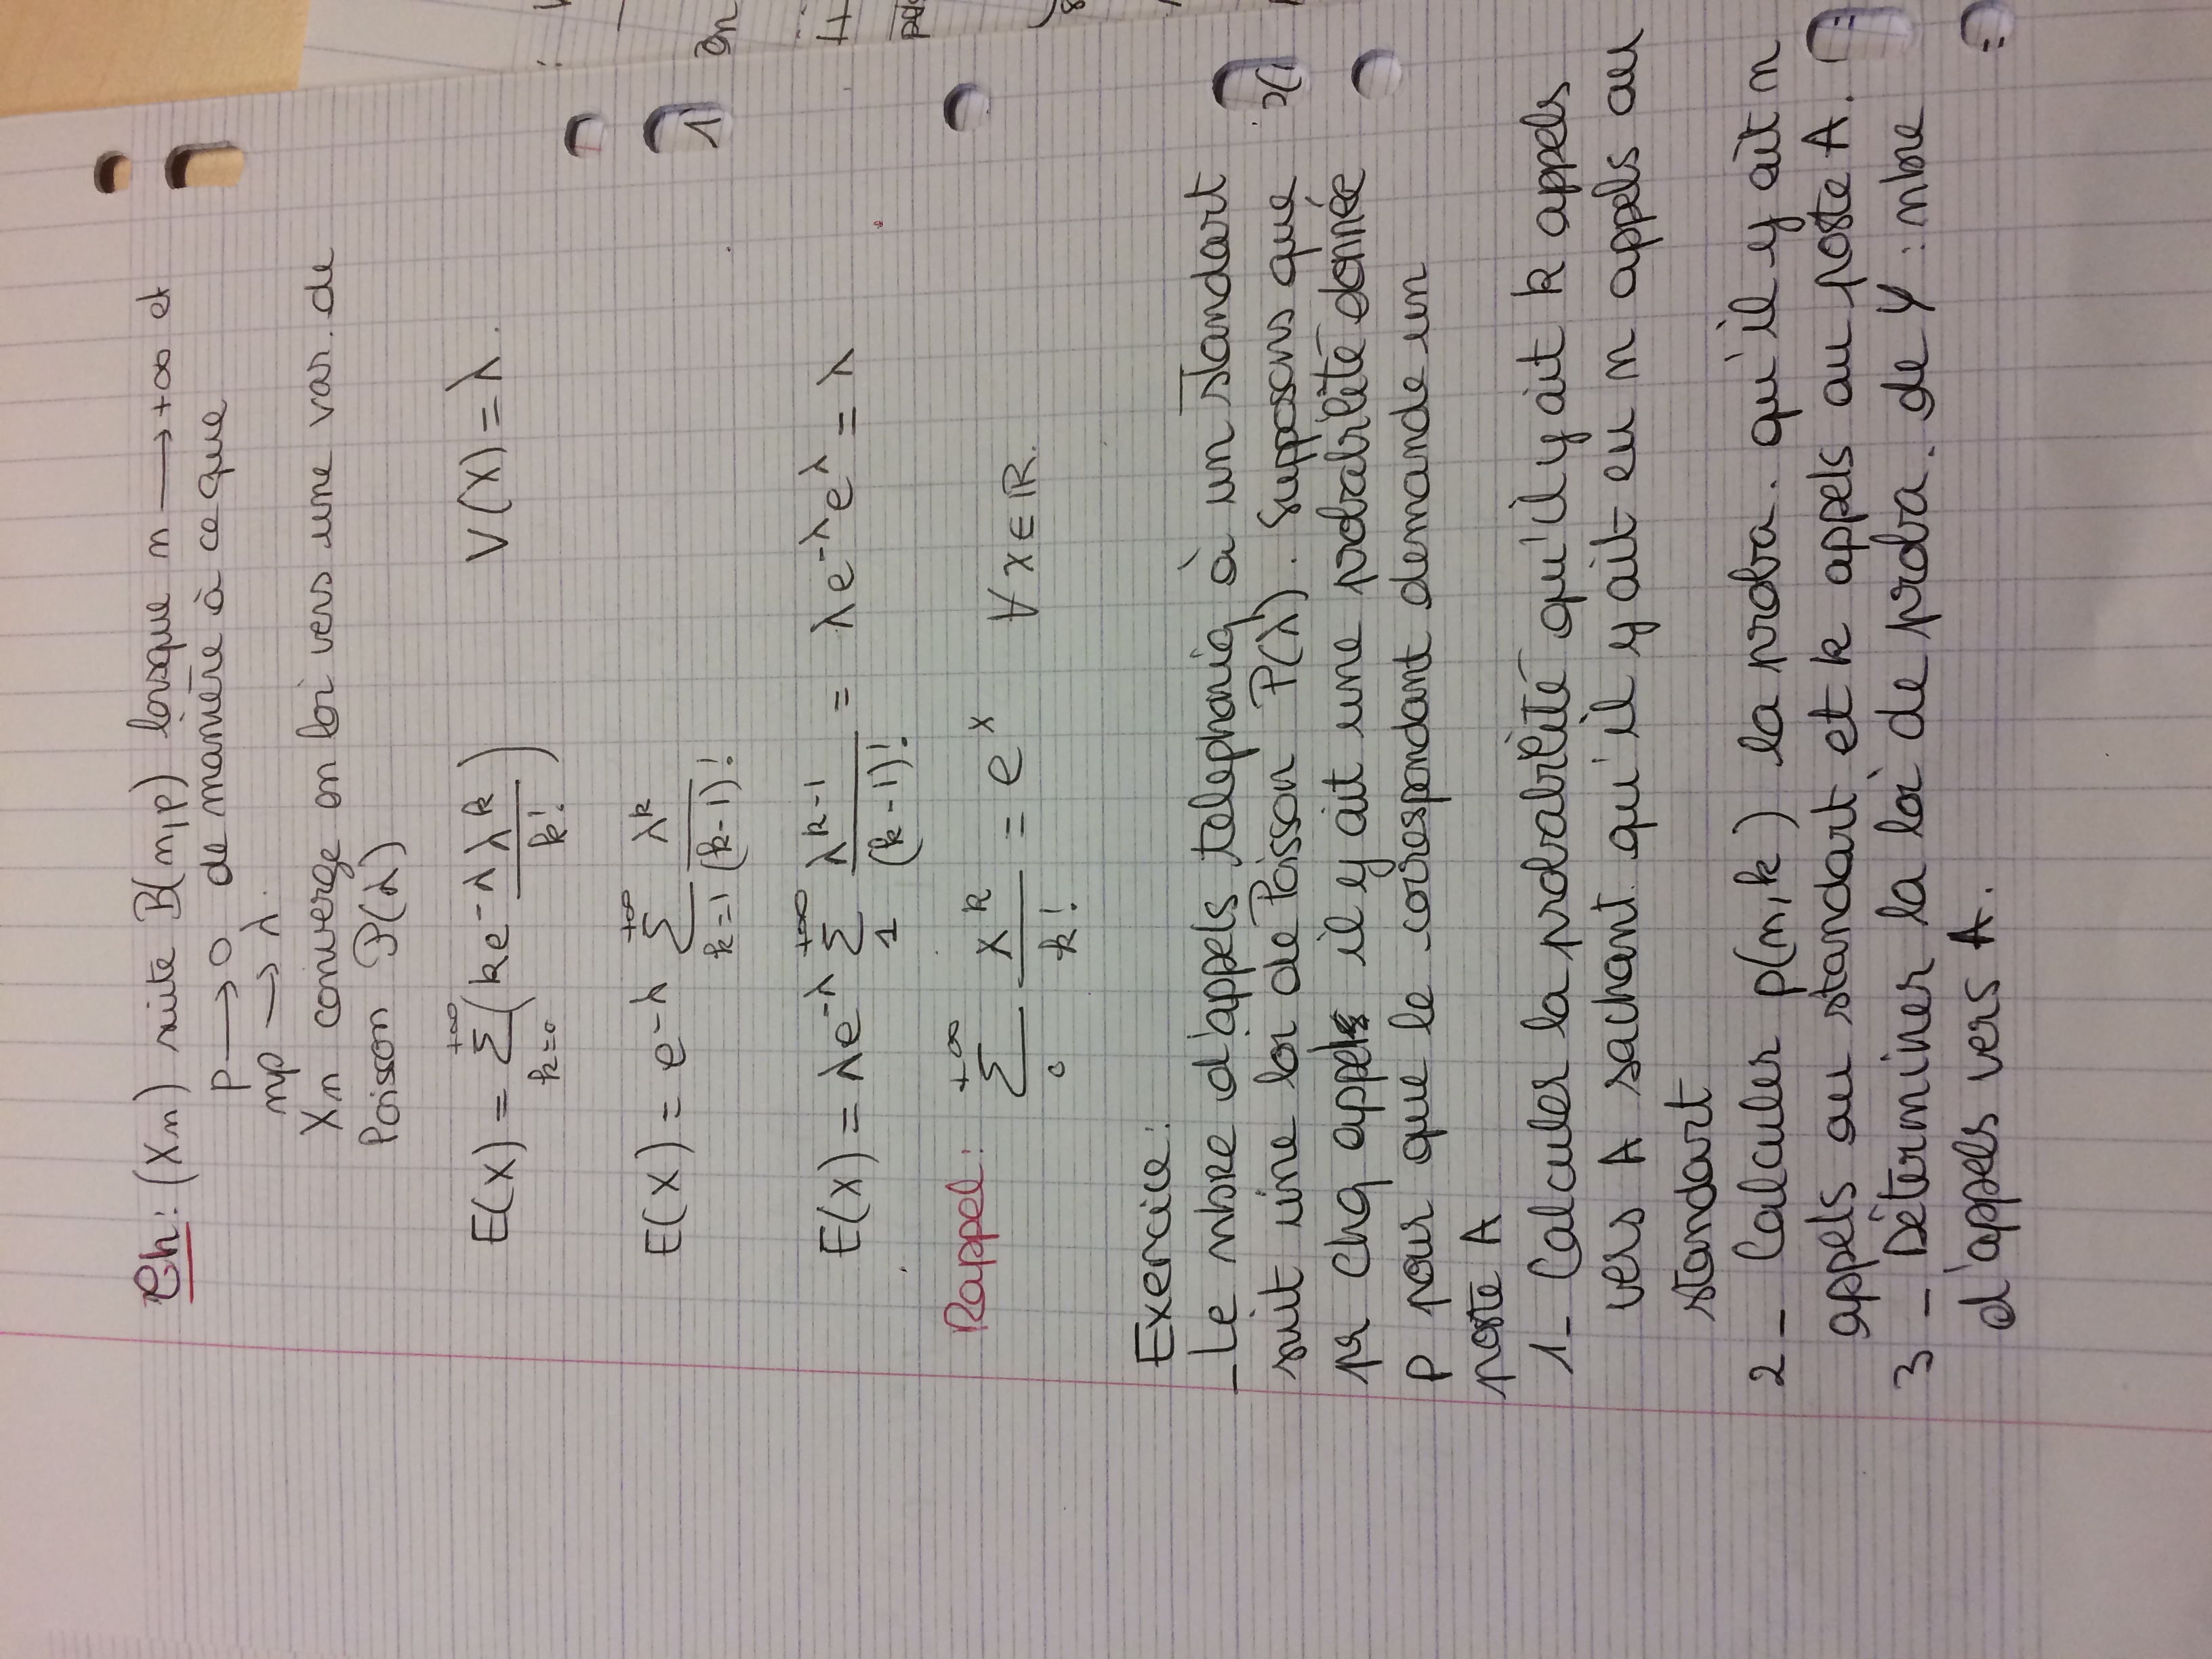 Th : (Xn) suite B(n,p) lorsque n → +∞ et
p → 0 de manière à ce que
np → λ.
Xn converge en loi vers une var. de
Poisson P(λ)
E(X) = +∞ Σ k=0 (k e^-λ λ^k / k!) V(X) = λ.
E(X) = e^-λ +∞ Σ k=1 λ^k / (k-1)!
E(X) = λe^-λ +∞ Σ 1 λ^k-1 / (k-1)! = λe^-λ e^λ = λ
Rappel : +∞ Σ 0 x^k / k! = e^x ∀ x ∈ ℝ.
Exercice :
- Le nbre d'appels telephoniq à un standart
suit une loi de Poisson P(λ). Supposons que
pr chq appel il y ait une probabilité donnée
p pour que le correspondant demande un
poste A
1 - Calculer la probabilité qu'il y ait k appels
vers A sachant qu'il y ait eu n appels au
standart
2 - Calculer p(n,k) la proba. qu'il y ait n
appels au standart et k appels au poste A.
3 - Déterminer la loi de proba. de Y : nbre
d'appels vers A.